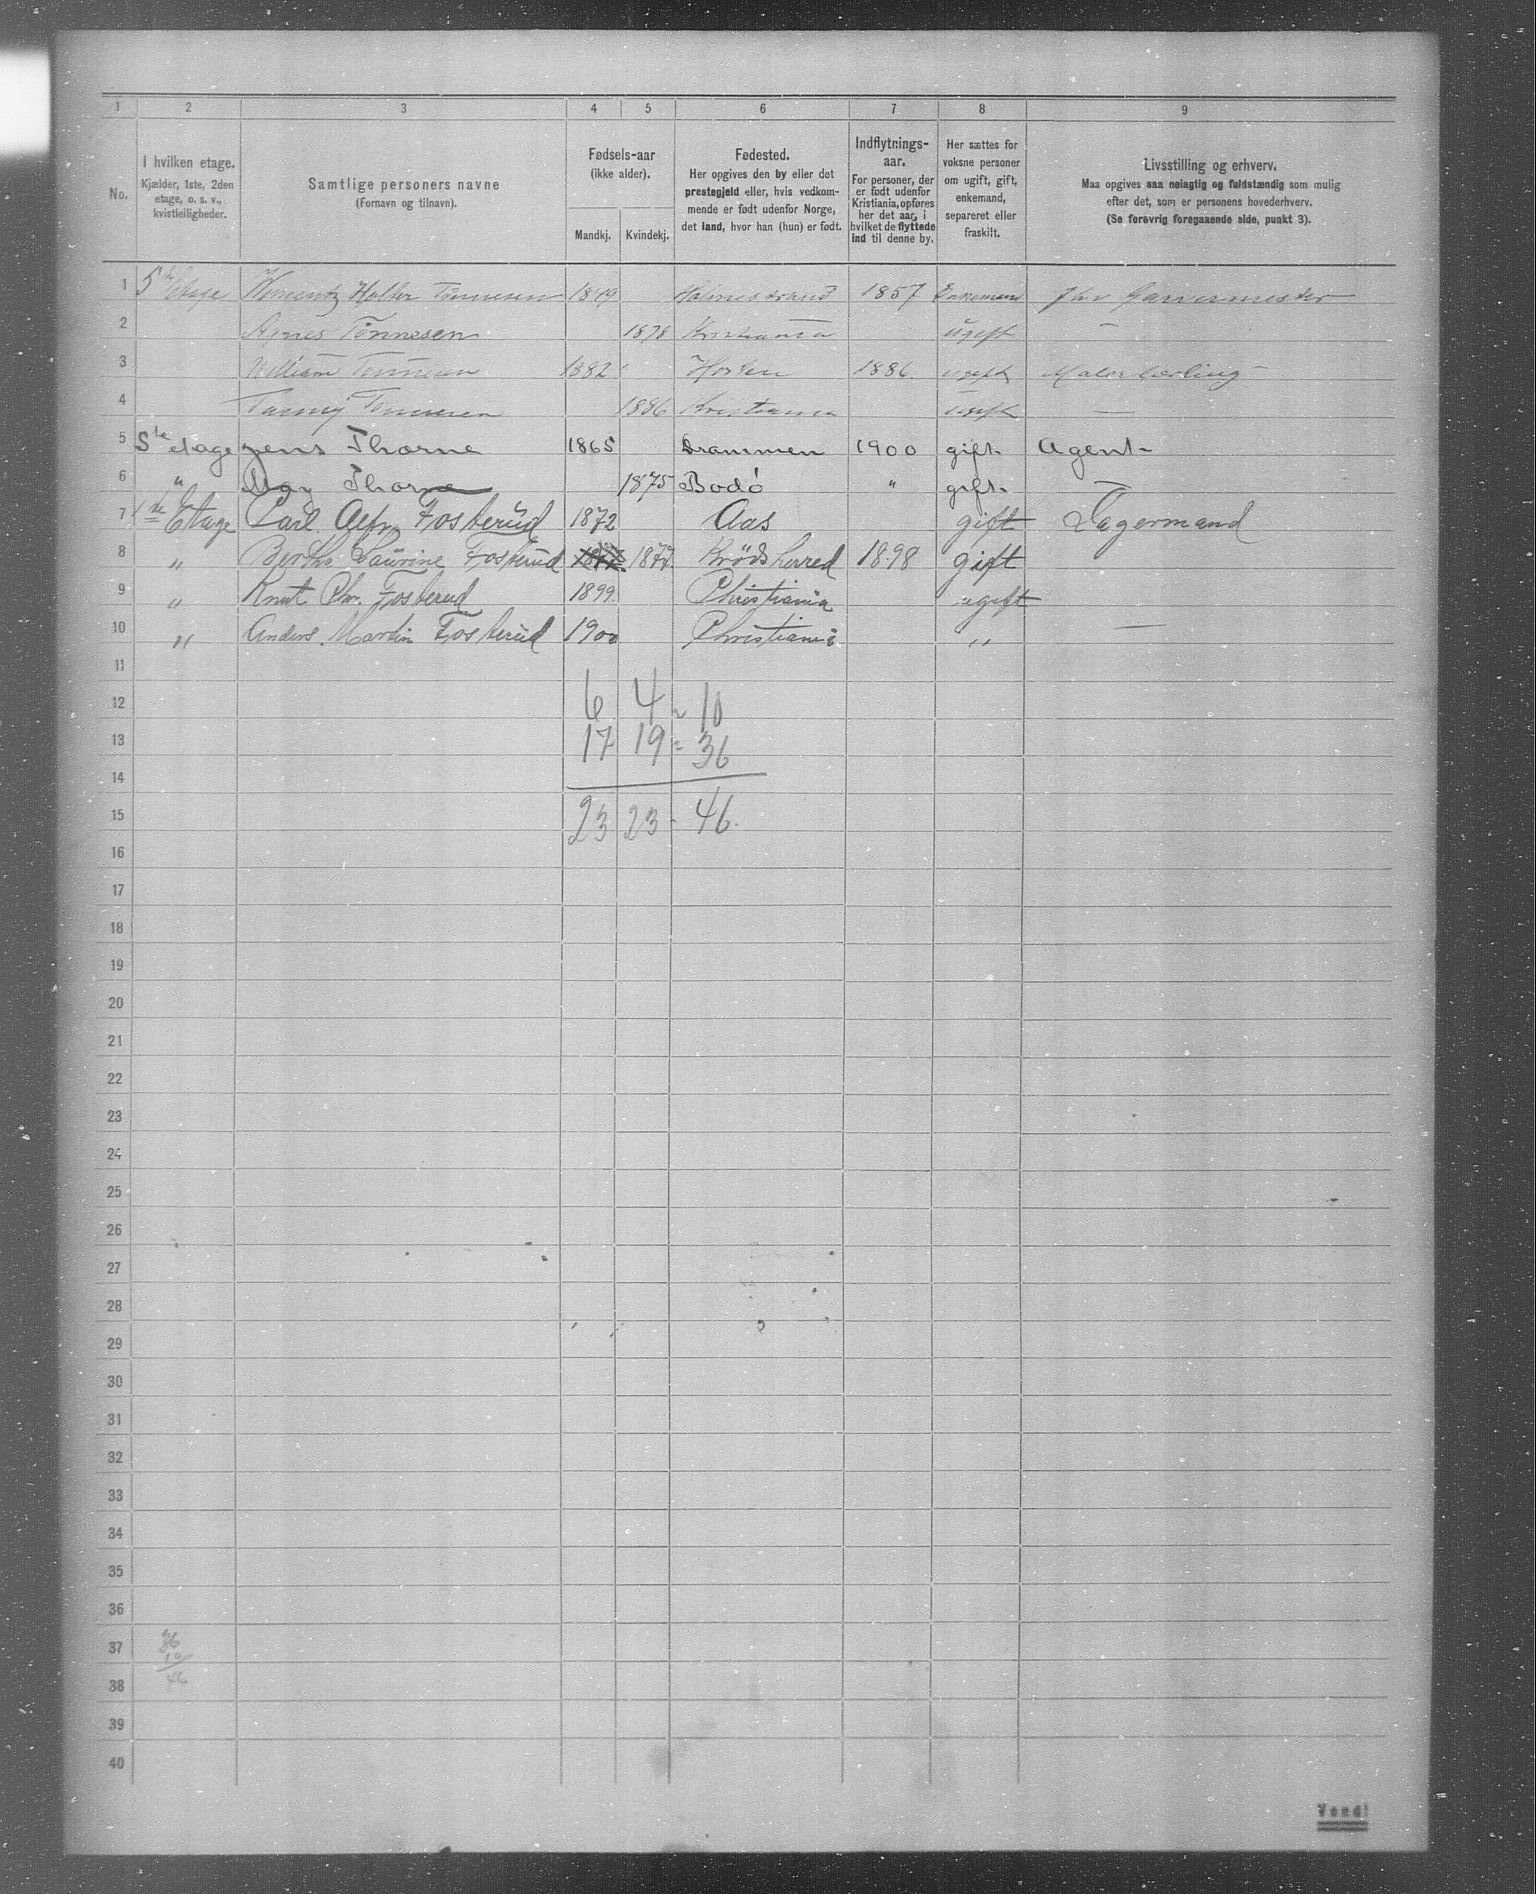 1 2 3 4 5 6 7 8 9
No.
I hvilken etage.
Kjælder, 1ste, 2den
etage, o. s. v.,
kvistleiligheder.
Samtlige personers navne
(Fornavn og tilnavn).
Fødsels-aar
(ikke alder).
Mandkj. Kvindekj.
Fødested.
Her opgives den by eller det
prestegjeld eller, hvis vedkom-
mende er født udenfor Norge,
det land, hvor han (hun) er født.
Indflytnings-
aar.
For personer, der
er født udenfor
Kristiania, opføres
her det aar, i
hvilket de flyttede
ind til denne by.
Her sættes for
voksne personer
om ugift, gift,
enkemand,
separeret eller
fraskilt.
Livsstilling og erhverv.
Maa opgives saa nøiagtig og fuldstændig som mulig
efter det, som er personens hovederhverv.
(Se forøvrig foregaaende side, punkt 3).
1 5te Etage Holter Tønnesen 1849 Holmestrand 1857 Enkemand Garvermester
2 Agnes Tønnesen 1878 Kristiania ugift —
3 William Tønnesen 1882 Horten 1886. ugift Malerlærling
4 Fanny Tønnesen 1886 Kristiania ugift —
5 5te etage Jens Thorne 1865 Drammen 1900 gift. Agent
6 " Thorne 1875 Bodö " gift. —
7 1ste Etage Carl Alfr. Fosterüd 1872 Aas gift Lagermand
8 " Berthe Laürine Fosterüd 1877. 1877. Krödsherred 1898 gift
9 " Knut Chr. Fosterud 1899. Christiania ugift
10 " Anders Martin Fosterüd 1900 Christiania " —
11
12 6 4 = 10
13 17 19 = 36
14
15 23 23 - 46.
16
17
18
19
20
21
22
23
24
25
26
27
28
29
30
31
32
33
34
35
36
37 36
10
38 46
39
40
Vend!